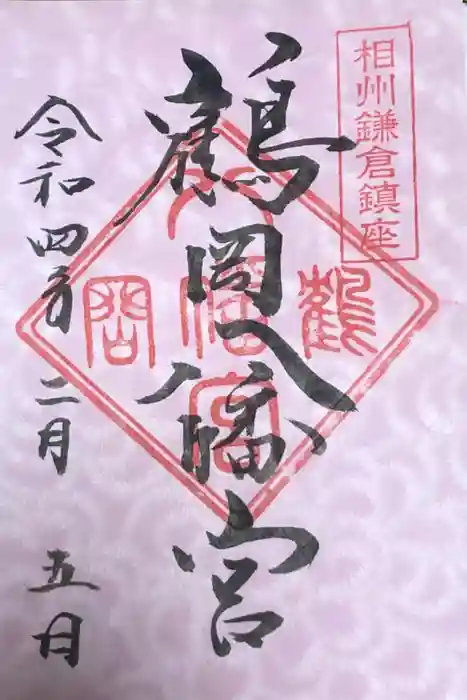 相州鎌倉鎮座
鶴岡八幡宮
鶴
岡
八幡宮
令和四年二月五日